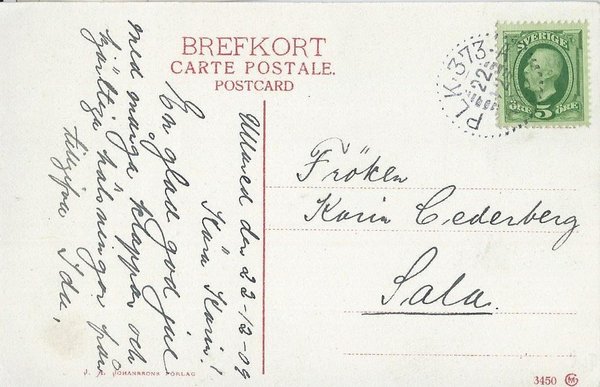 BREFKORT
CARTE POSTALE.
POSTCARD
PLK 373
22
SVERIGE
ÖRE 5 ÖRE
Ullared den 22-12-09
Kära Karin!
En glad god jul
med många klappar och
hjärtliga hälsningar från
Ida.
Fröken
Karin Cederberg
Sala.
J. A. JOHANSSONS FÖRLAG
3450